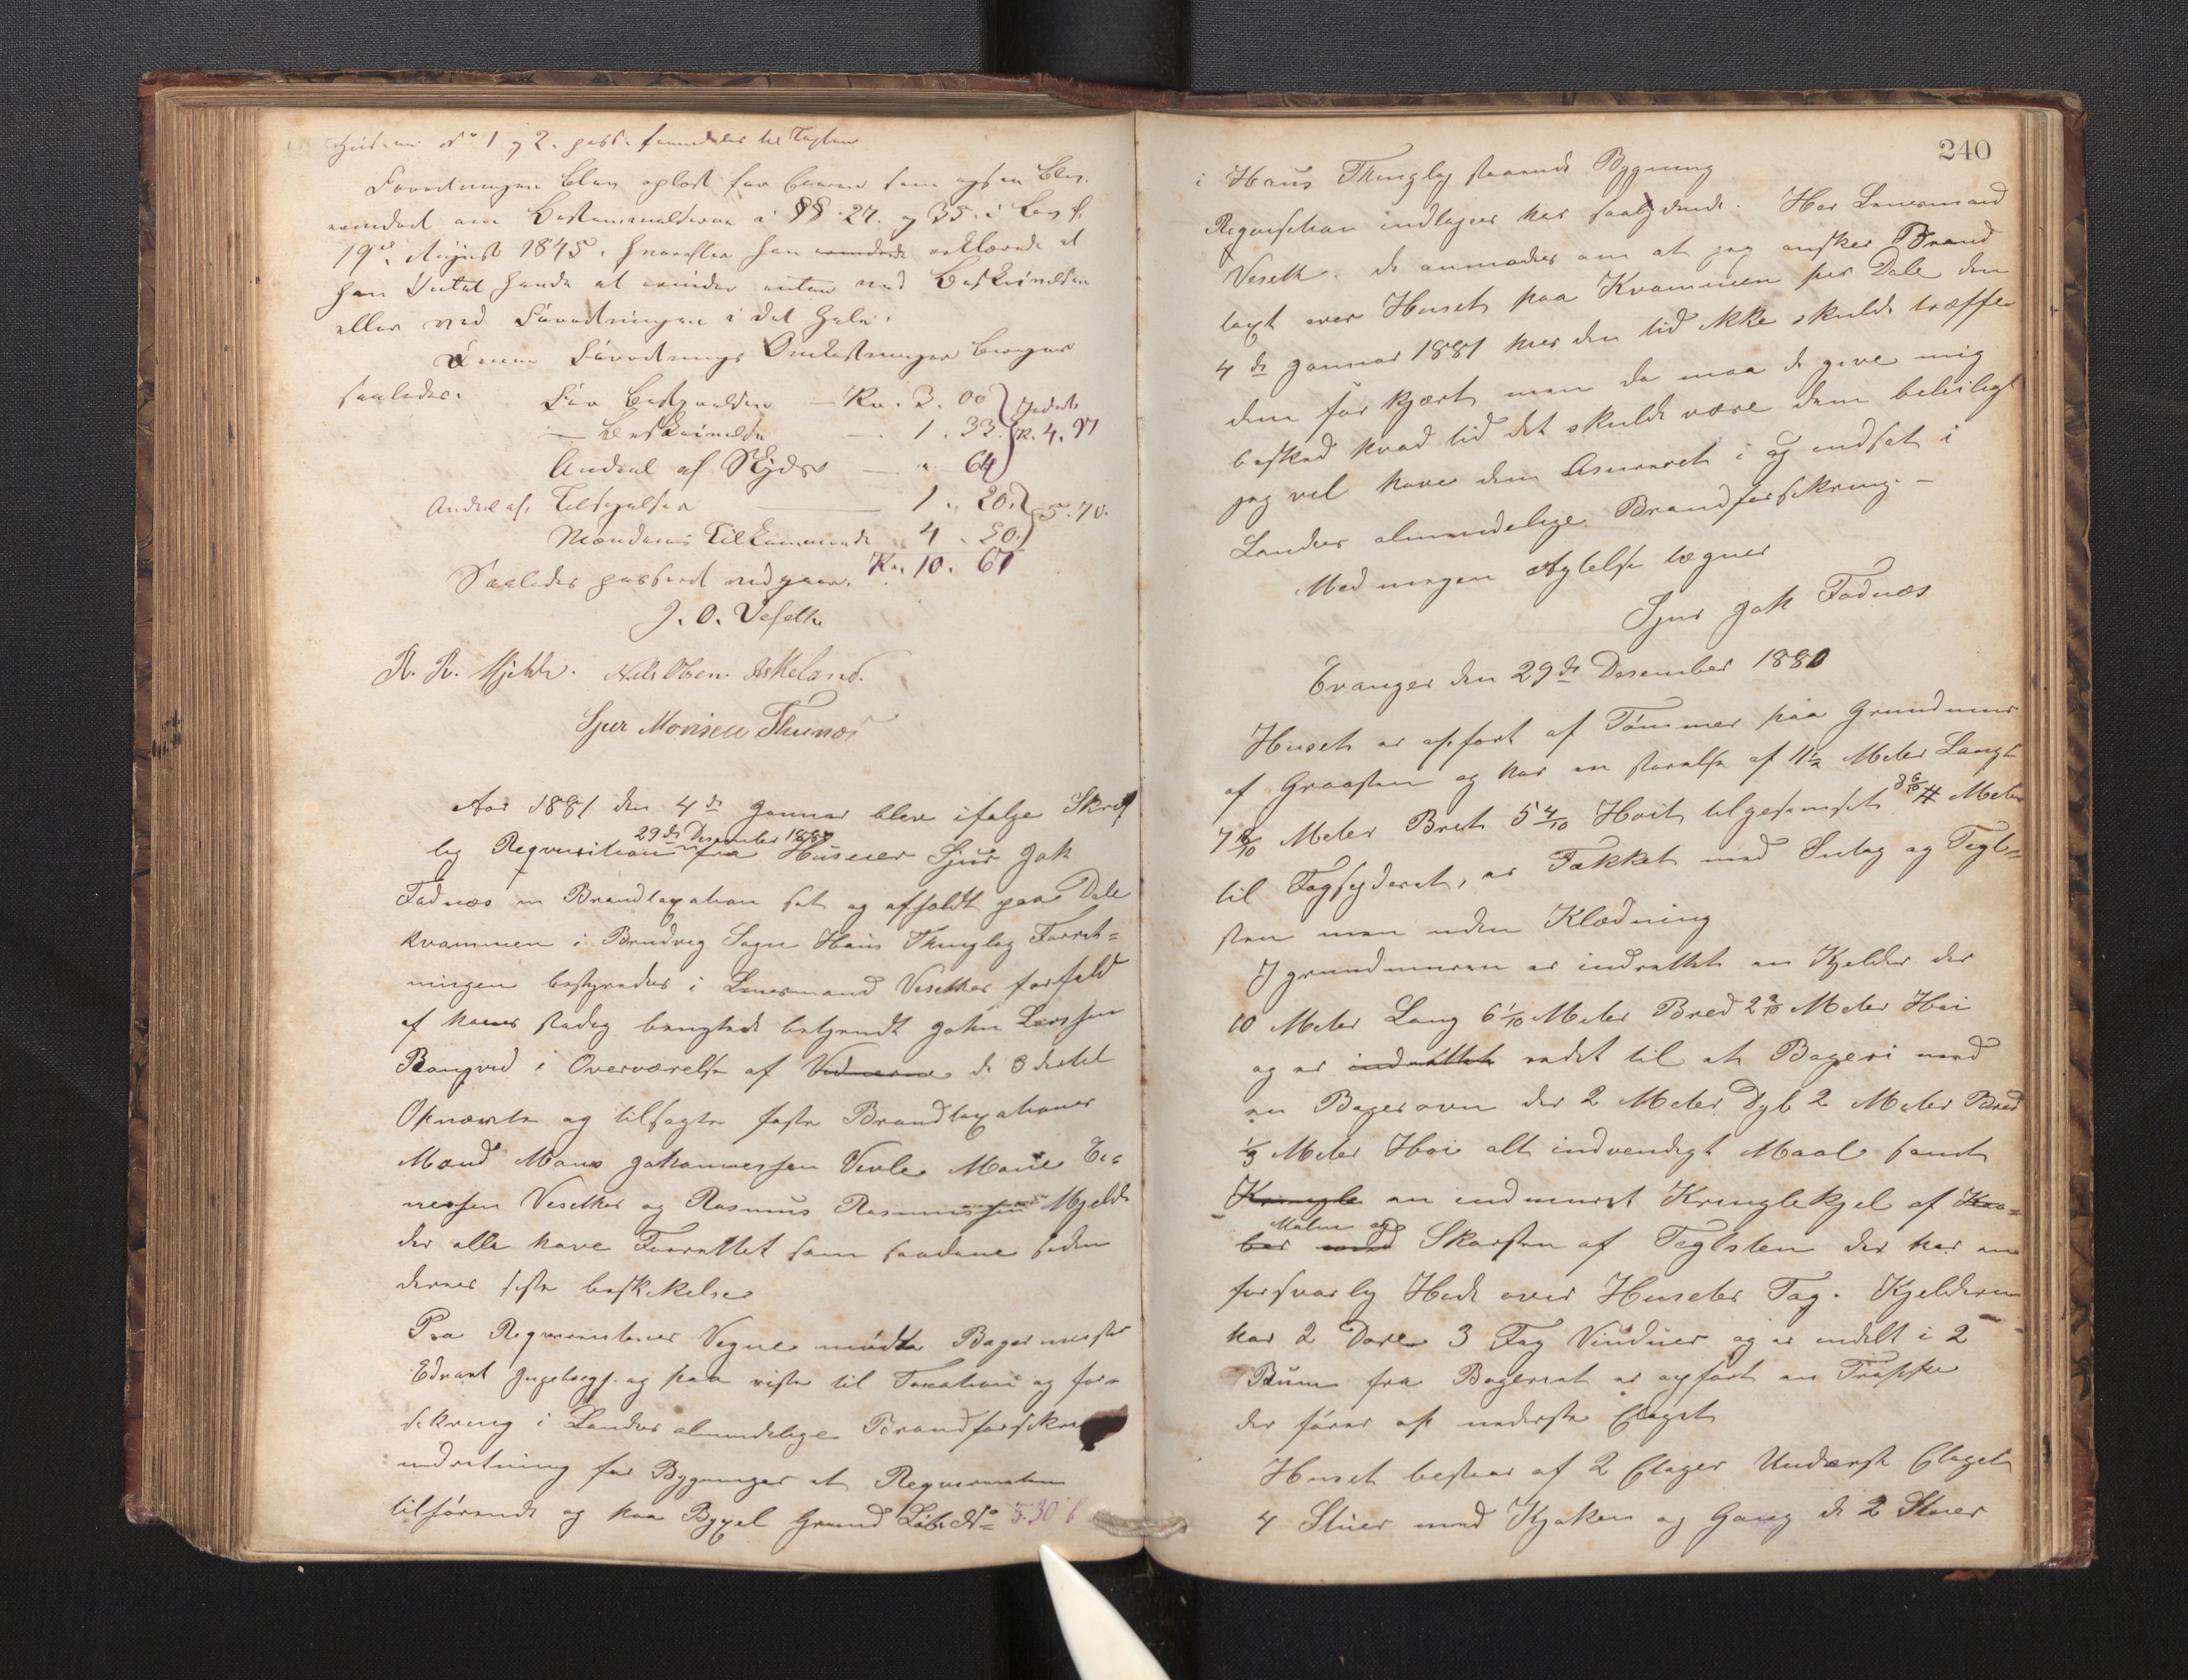 Husene No 1 og 2.
Forretningen blev oplæst for
om Bestemmelserne i §§ 27. og 35. i Lov f.
19de August 1845, hvorefter han erklærede at
han Intet havde at erindre enten ved Beskrivelsen
eller ved Forretningen i det Hele.
Denne Forretnings Omkostninger beregnes
saaledes:
For Bestyrelsen — Kr. 3. 00
— Beskrivelse — 1. 33. Kr. 4. 97
Andeel af Skyds — " 64
Andeel af Tilsigelsen — 1. 20.
Mændenes Tilkommende 4. 50. 5. 70.
Saaledes passeret vedgaar. Kr. 10. 67
J. O. Veseth
R. R. Mjelde. Nils Olsen Askeland.
Sjur Monsen Fluenæs
Aar 1881 den 4de Januar blev ifølge Skrift
29de Desember 1880
lig Reqvisition fra Huseier Sjur Joh
Fadnæs en Brandtaxation sat og afholdt paa Dale
kvammen i Brudvig Sogn Haus Thinglag Forret=
ningen bestyredes i Lensmand Veseths forfald
af hans stadig betjendt John Larsen
Bangved i Overværelse af Vidnerne de 3 dertil
Opnævnte og tilsagte faste Brandtaxations
Mænd Mons Johannessen Vevle Mons Ei=
nersen Veseth og Rasmus Rasmussen Mjelde
der alle have Forrettet som saadane siden
deres siste beskikkelse
Paa Reqvirentens Vegne mødte Bagermester
Edvart Ingebregs. og paa viste til Taxation og for=
sikring i Landets almindelige Brandforsikrings
indretning for Bygninger et Reqvirenten
tilhørende og paa Bygsel Grund Løbe No 530 b
240
i Haus Thinglag staaende Bygning
Reqvisitian indtages her saalydende. Her Lensmand
Veseth. de anmodes om at jeg ønsker Brand
taxt over Huset paa Kvammen per Dale den
4de Januar 1881 hvis den tid ikke skulde træffe
dem før kjært men da maa de give mig
besked hvad tid det skulde være dem beleiligt
jeg vil have dem Asureret i og indsat i
Landets almindelige Brandforsikring. —
Med megen Agtelse tegner
Sjur Joh Fadnæs
Evanger den 29de Desember 1880
Huset er opført af Tømmer paa Grundmur
af Graasten og har en størelse af 11½ Meter Langt
7 8/10 Meter Bret 5 4/10 Høit tilgesimset 8 6/10 Meter
til Tagskjeret, er Tækket med Sutag og Tegl=
sten men uden Klædning
I grundmuren er indrettet en Kjelder der
10 Meter Lang 6 1/10 Meter Bred 2 2/10 Meter Høi
og er indrettet redet til et Bageri med
en Bagerovn der 2 Meter Dyb 2 Meter Bred
1/3 Meter Høi alt indvendigt Maal samt
Kringle en indmuret Kringlekjel af Kao=
Malm og
ber med Skorsten af Teglsten der har en
forsvarlig Høide over Husets Tag. Kjelderen
har 2 Døre 3 Fag Vinduer og er indelt i 2
Rum fra Bageriet er opført en Trappe
der fører op nederste Etaget
Huset bestaar af 2 Etager Underste Etaget
4 Stuer med Kjøken og Gang de 2 Stuer